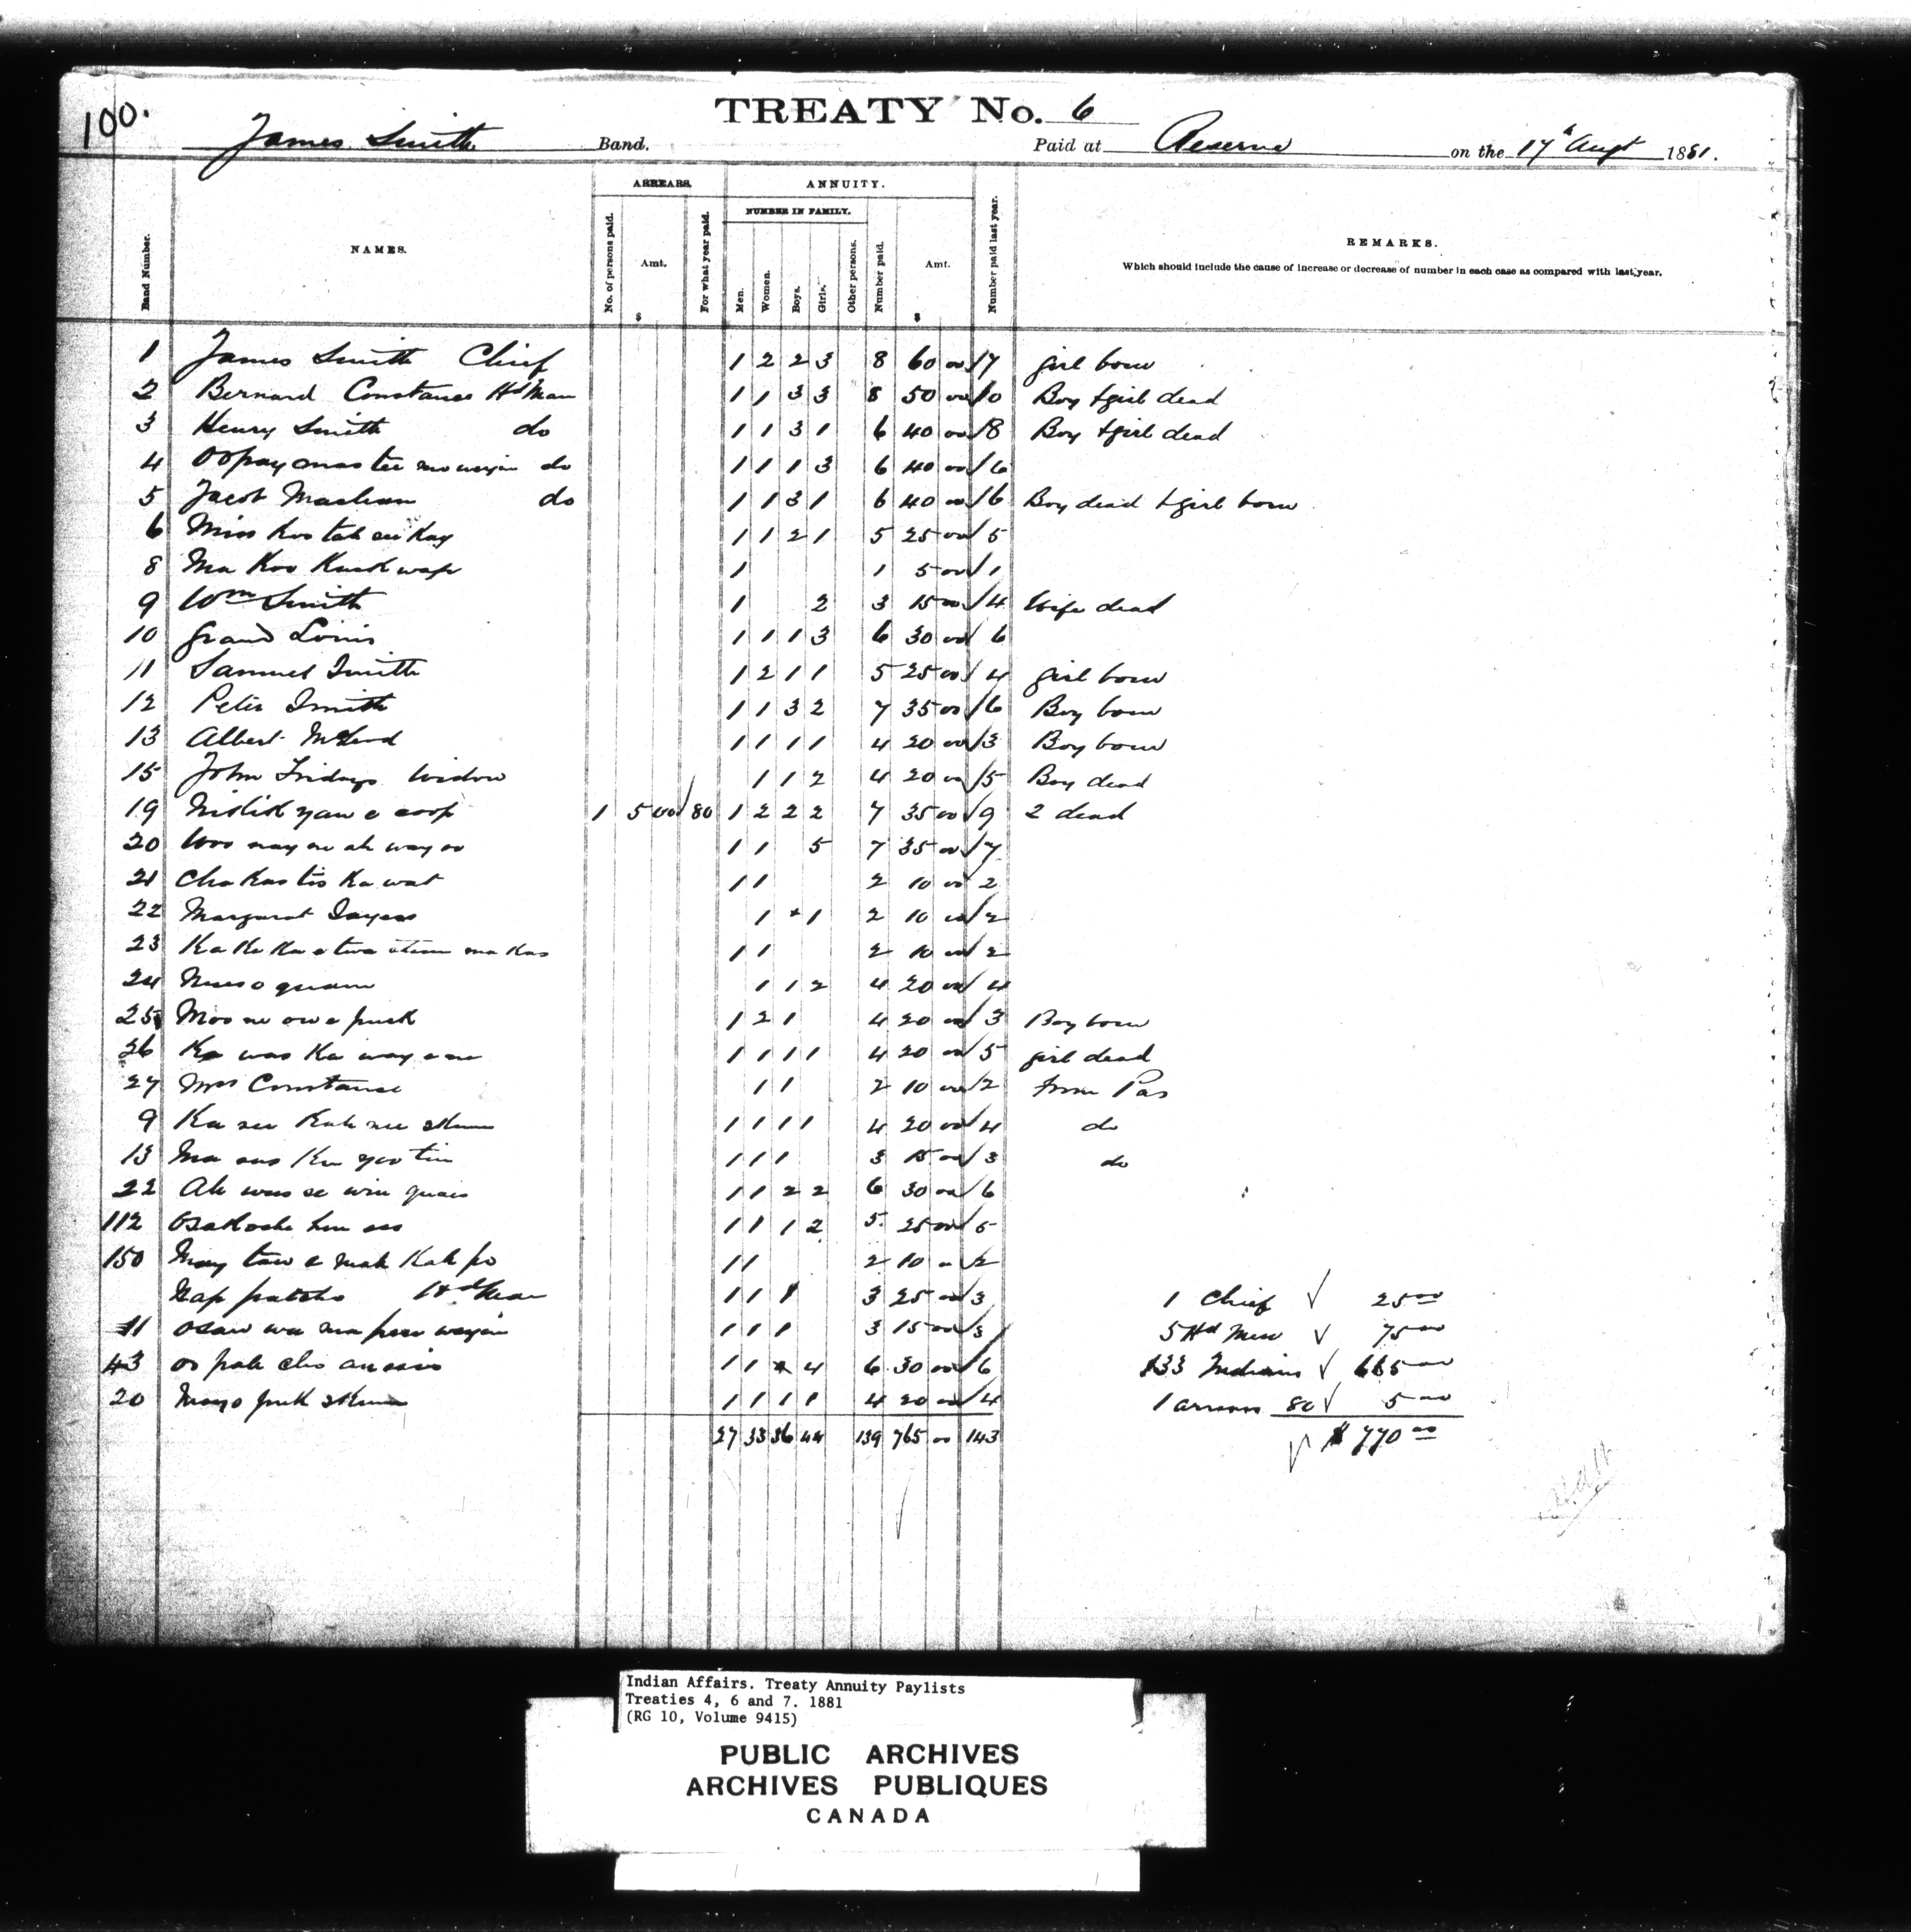 100.
TREATY No. 6
James Smith Band. Paid at Reserve on the 17th Augt 1881.
ARREARS. ANNUITY.
NUMBER IN FAMILY.
Band Number. NAMES. No. of persons paid. Amt. $ For what year paid. Men. Women. Boys. Girls. Other persons. Number paid. Amt. $ Number paid last year. REMARKS.
Which should include the cause of increase or decrease of number in each case as compared with last year.
1 James Smith Chief 1 2 2 3 8 60 00 / 7 girl born
2 Bernard Constance Hd Man 1 1 3 3 8 50 00 / 10 Boy & girl dead
3 Henry Smith do 1 1 3 1 6 40 00 / 8 Boy & girl dead
4 do 1 1 1 3 6 40 00 / 6
5 Jacob do 1 1 3 1 6 40 00 / 6 Boy dead & girl born
6 1 1 2 1 5 25 00 / 5
8 Ma Koo Kuck wap 1 1 5 00 / 1
9 Wm Smith 1 2 3 15 00 / 4 Wife dead
10 Grand Louis 1 1 1 3 6 30 00 / 6
11 Samuel Smith 1 2 1 1 5 25 00 / 4 girl born
12 Peter Smith 1 1 3 2 7 35 00 / 6 Boy born
13 Albert McLeod 1 1 1 1 4 20 00 / 3 Boy born
15 John Fridays Widow 1 1 2 4 20 00 / 5 Boy dead
19 1 5 00 / 80 1 2 2 2 7 35 00 / 9 2 dead
20 1 1 5 7 35 00 / 7
21 Cha Kas tis Ka wat 1 1 2 10 00 / 2
22 Margaret 1 1 2 10 00 / 2
23 1 1 2 10 00 / 2
24 1 1 2 4 20 00 / 4
25 1 2 1 4 20 00 / 3 Boy born
26 Ka was Ka way 1 1 1 1 4 20 00 / 5 girl dead
27 Mrs Constance 1 1 2 10 00 / 2 from Pas
9 1 1 1 1 4 20 00 / 4 do
13 1 1 1 3 15 00 / 3 do
22 1 1 2 2 6 30 00 / 6
112 1 1 1 2 5 25 00 / 5
150 May taw e mah Kah po 1 1 2 10 00 / 2
Hd Man 1 1 1 3 25 00 / 3 1 Chief √ 25 00
11 1 1 1 3 15 00 / 3 5 Hd Men √ 75 00
43 1 1 4 6 30 00 / 6 133 Indians √ 665 00
20 1 1 1 1 4 20 00 / 4 1 arrears 80 √ 5 00
27 33 36 44 139 765 00 143 √ $ 770 00
Indian Affairs. Treaty Annuity Paylists
Treaties 4, 6 and 7. 1881
(RG 10, Volume 9415)
PUBLIC ARCHIVES
ARCHIVES PUBLIQUES
CANADA